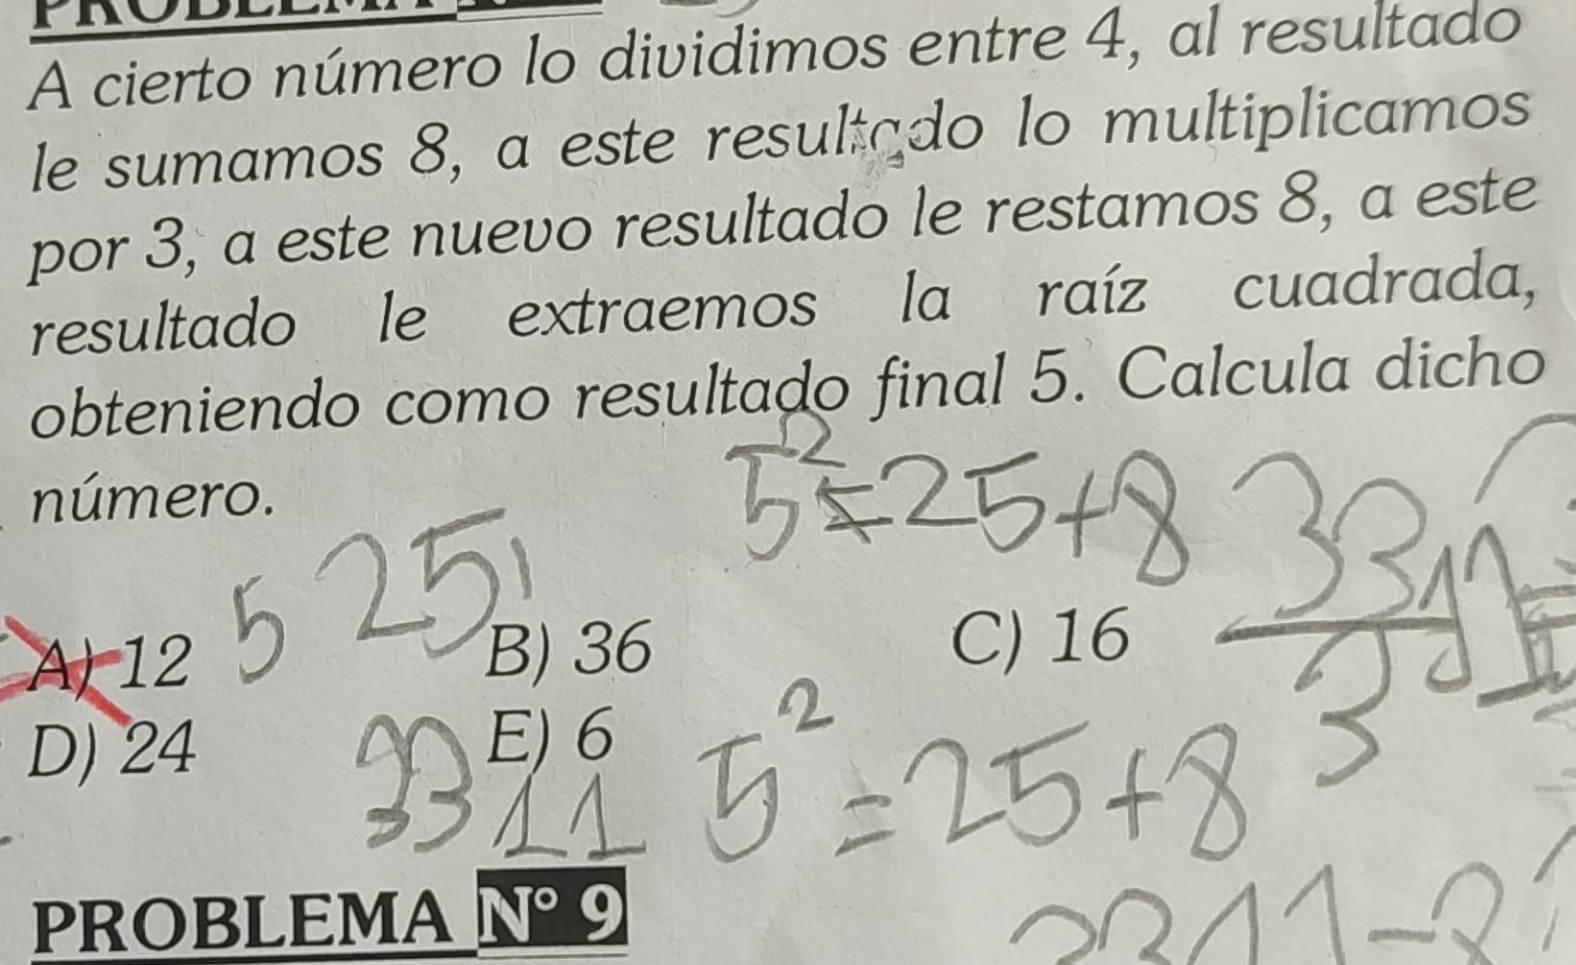 PROBLEMA
A cierto número lo dividimos entre 4, al resultado
le sumamos 8, a este resultado lo multiplicamos
por 3, a este nuevo resultado le restamos 8, a este
resultado le extraemos la raíz cuadrada,
obteniendo como resultado final 5. Calcula dicho
número.
5² = 25+8 33 11
3
5 25
A) 12 B) 36 C) 16
D) 24 E) 6
33 11 5² = 25+8
PROBLEMA N° 9
33 11 - 8